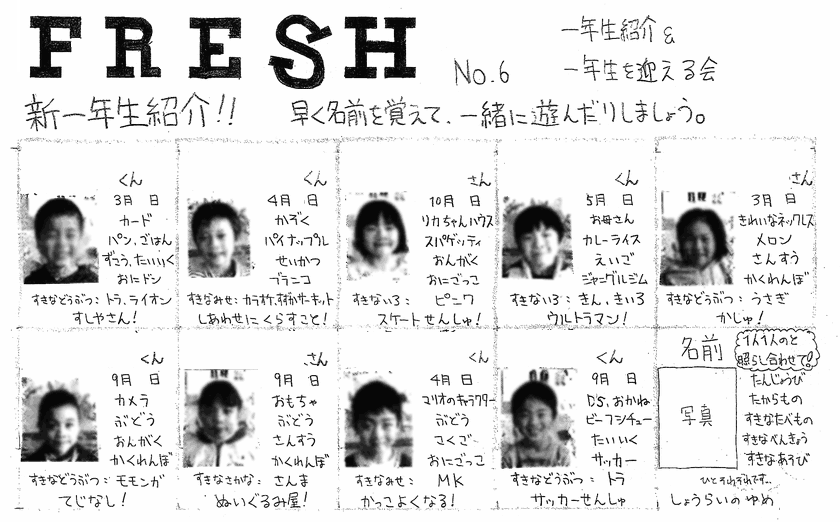 FRESH
No.6
一年生紹介&
一年生を迎える会
新一年生紹介!!
早く名前を覚えて、一緒に遊んだりしましょう。
くん
3月 日
カード
パン、ごはん
ずこう、たいいく
おにドン
すきなどうぶつ:トラ、ライオン
すしやさん!
くん
4月 日
かぞく
パイナップル
せいかつ
ブランコ
すきなみせ:カラオケ、すずかサーキット
しあわせにくらすこと!
さん
10月 日
リカちゃんハウス
スパゲッティ
おんがく
おにごっこ
すきないろ:ピンク
スケートせんしゅ!
くん
5月 日
お母さん
カレーライス
えいご
ジャングルジム
すきないろ:きん、きいろ
ウルトラマン!
さん
3月 日
きれいなネックレス
メロン
さんすう
かくれんぼ
すきなどうぶつ:うさぎ
かしゅ!
くん
9月 日
カメラ
ぶどう
おんがく
かくれんぼ
すきなどうぶつ:モモンガ
てじなし!
さん
9月 日
おもちゃ
ぶどう
さんすう
かくれんぼ
すきなさかな:さんま
ぬいぐるみ屋!
くん
4月 日
マリオのキャラクター
ぶどう
こくご
おにごっこ
すきなみせ:MK
かっこよくなる!
くん
9月 日
DS、おかね
ビーフシチュー
たいいく
サッカー
すきなどうぶつ:トラ
サッカーせんしゅ
名前
1人1人のと
照らし合わせて!
写真
たんじょうび
たからもの
すきなたべもの
すきなべんきょう
すきなあそび
ひとそれぞれです…
しょうらいのゆめ